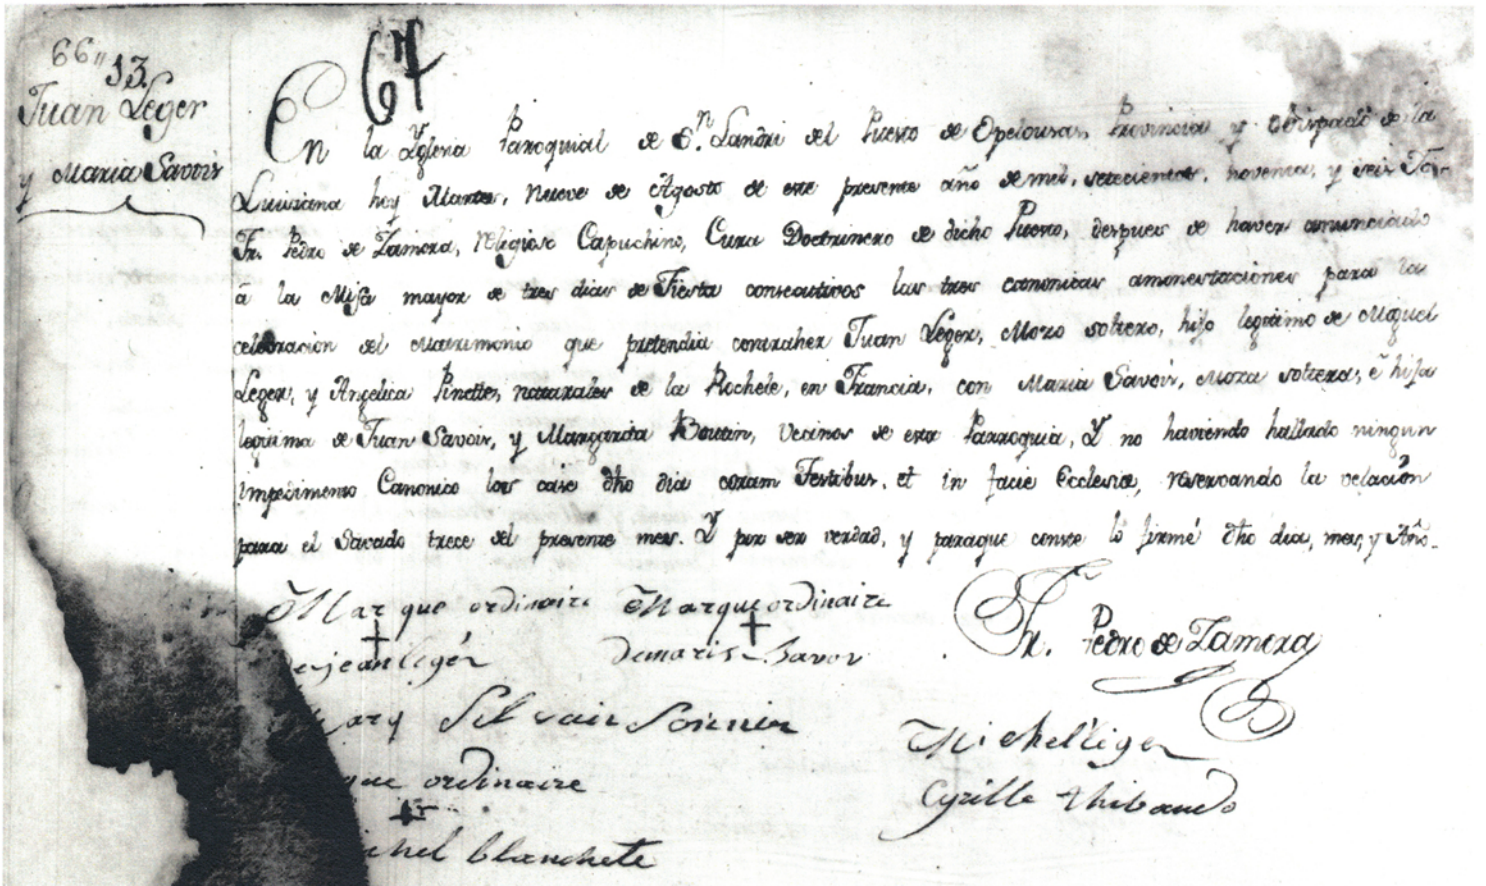 66"
13.
Juan Leger
y Maria Savoir
67
En la Yglesia Parroquial de Sn. Landri del Puesto de Opelousas, Provincia y obispado de la
Luisiana hoy Martes, nueve de Agosto de este presente año de mil, setecientos, noventa, y seis Yo
Fr. Pedro de Zamora, religioso Capuchino, Cura Doctrinero de dicho Puesto, despues de haver anunciado
â la Misa mayor de tres dias de Fiesta consecutivos las tres canonicas amonestaciones para la
celebracion del Matrimonio que pretendia contraher Juan Leger, Mozo soltero, hijo legitimo de Miguel
Leger, y Angelica Pinette, naturales de la Rochele, en Francia, con Maria Savoir, Moza soltera, ê hija
legitima de Juan Savoir, y Margarita Boutin, vecinos de esta Parroquia, Y no haviendo hallado ningun
impedimento Canonico los case dho dia coram Testibus, et in facie Ecclesia, reservando la velación
para el Savado trece del presente mes. Y por ser verdad, y paraque conste lo firmé dho dia, mes, y Año.
Marque ordinaire Marque ordinaire
de jean legér de maris Savoy
Fr. Pedro de Zamora
Silvain Sonnier
Michel liger
que ordinaire
Cyrille thibaudo
chel blanchete